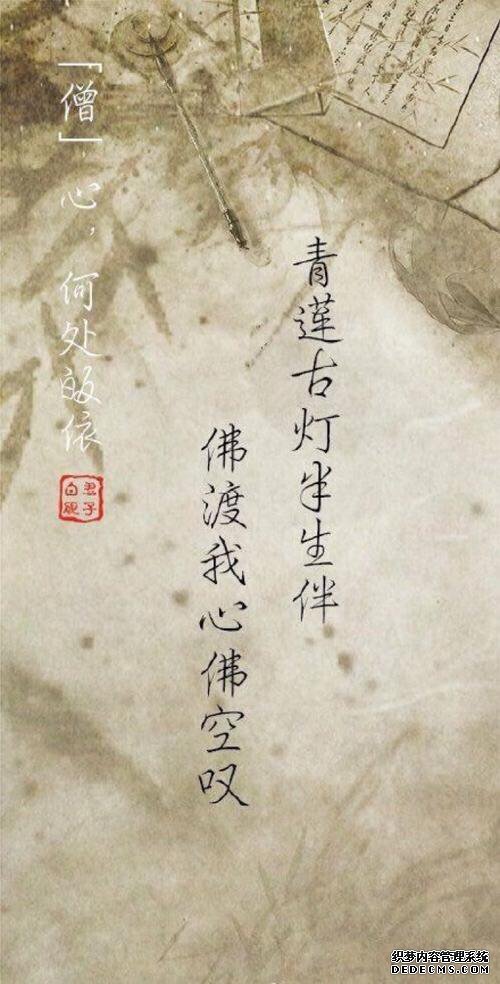 青莲古灯半生伴
佛渡我心佛空叹
「僧」心，何处皈依
君子
白砚
织梦内容管理系统
DEDECMS.COM